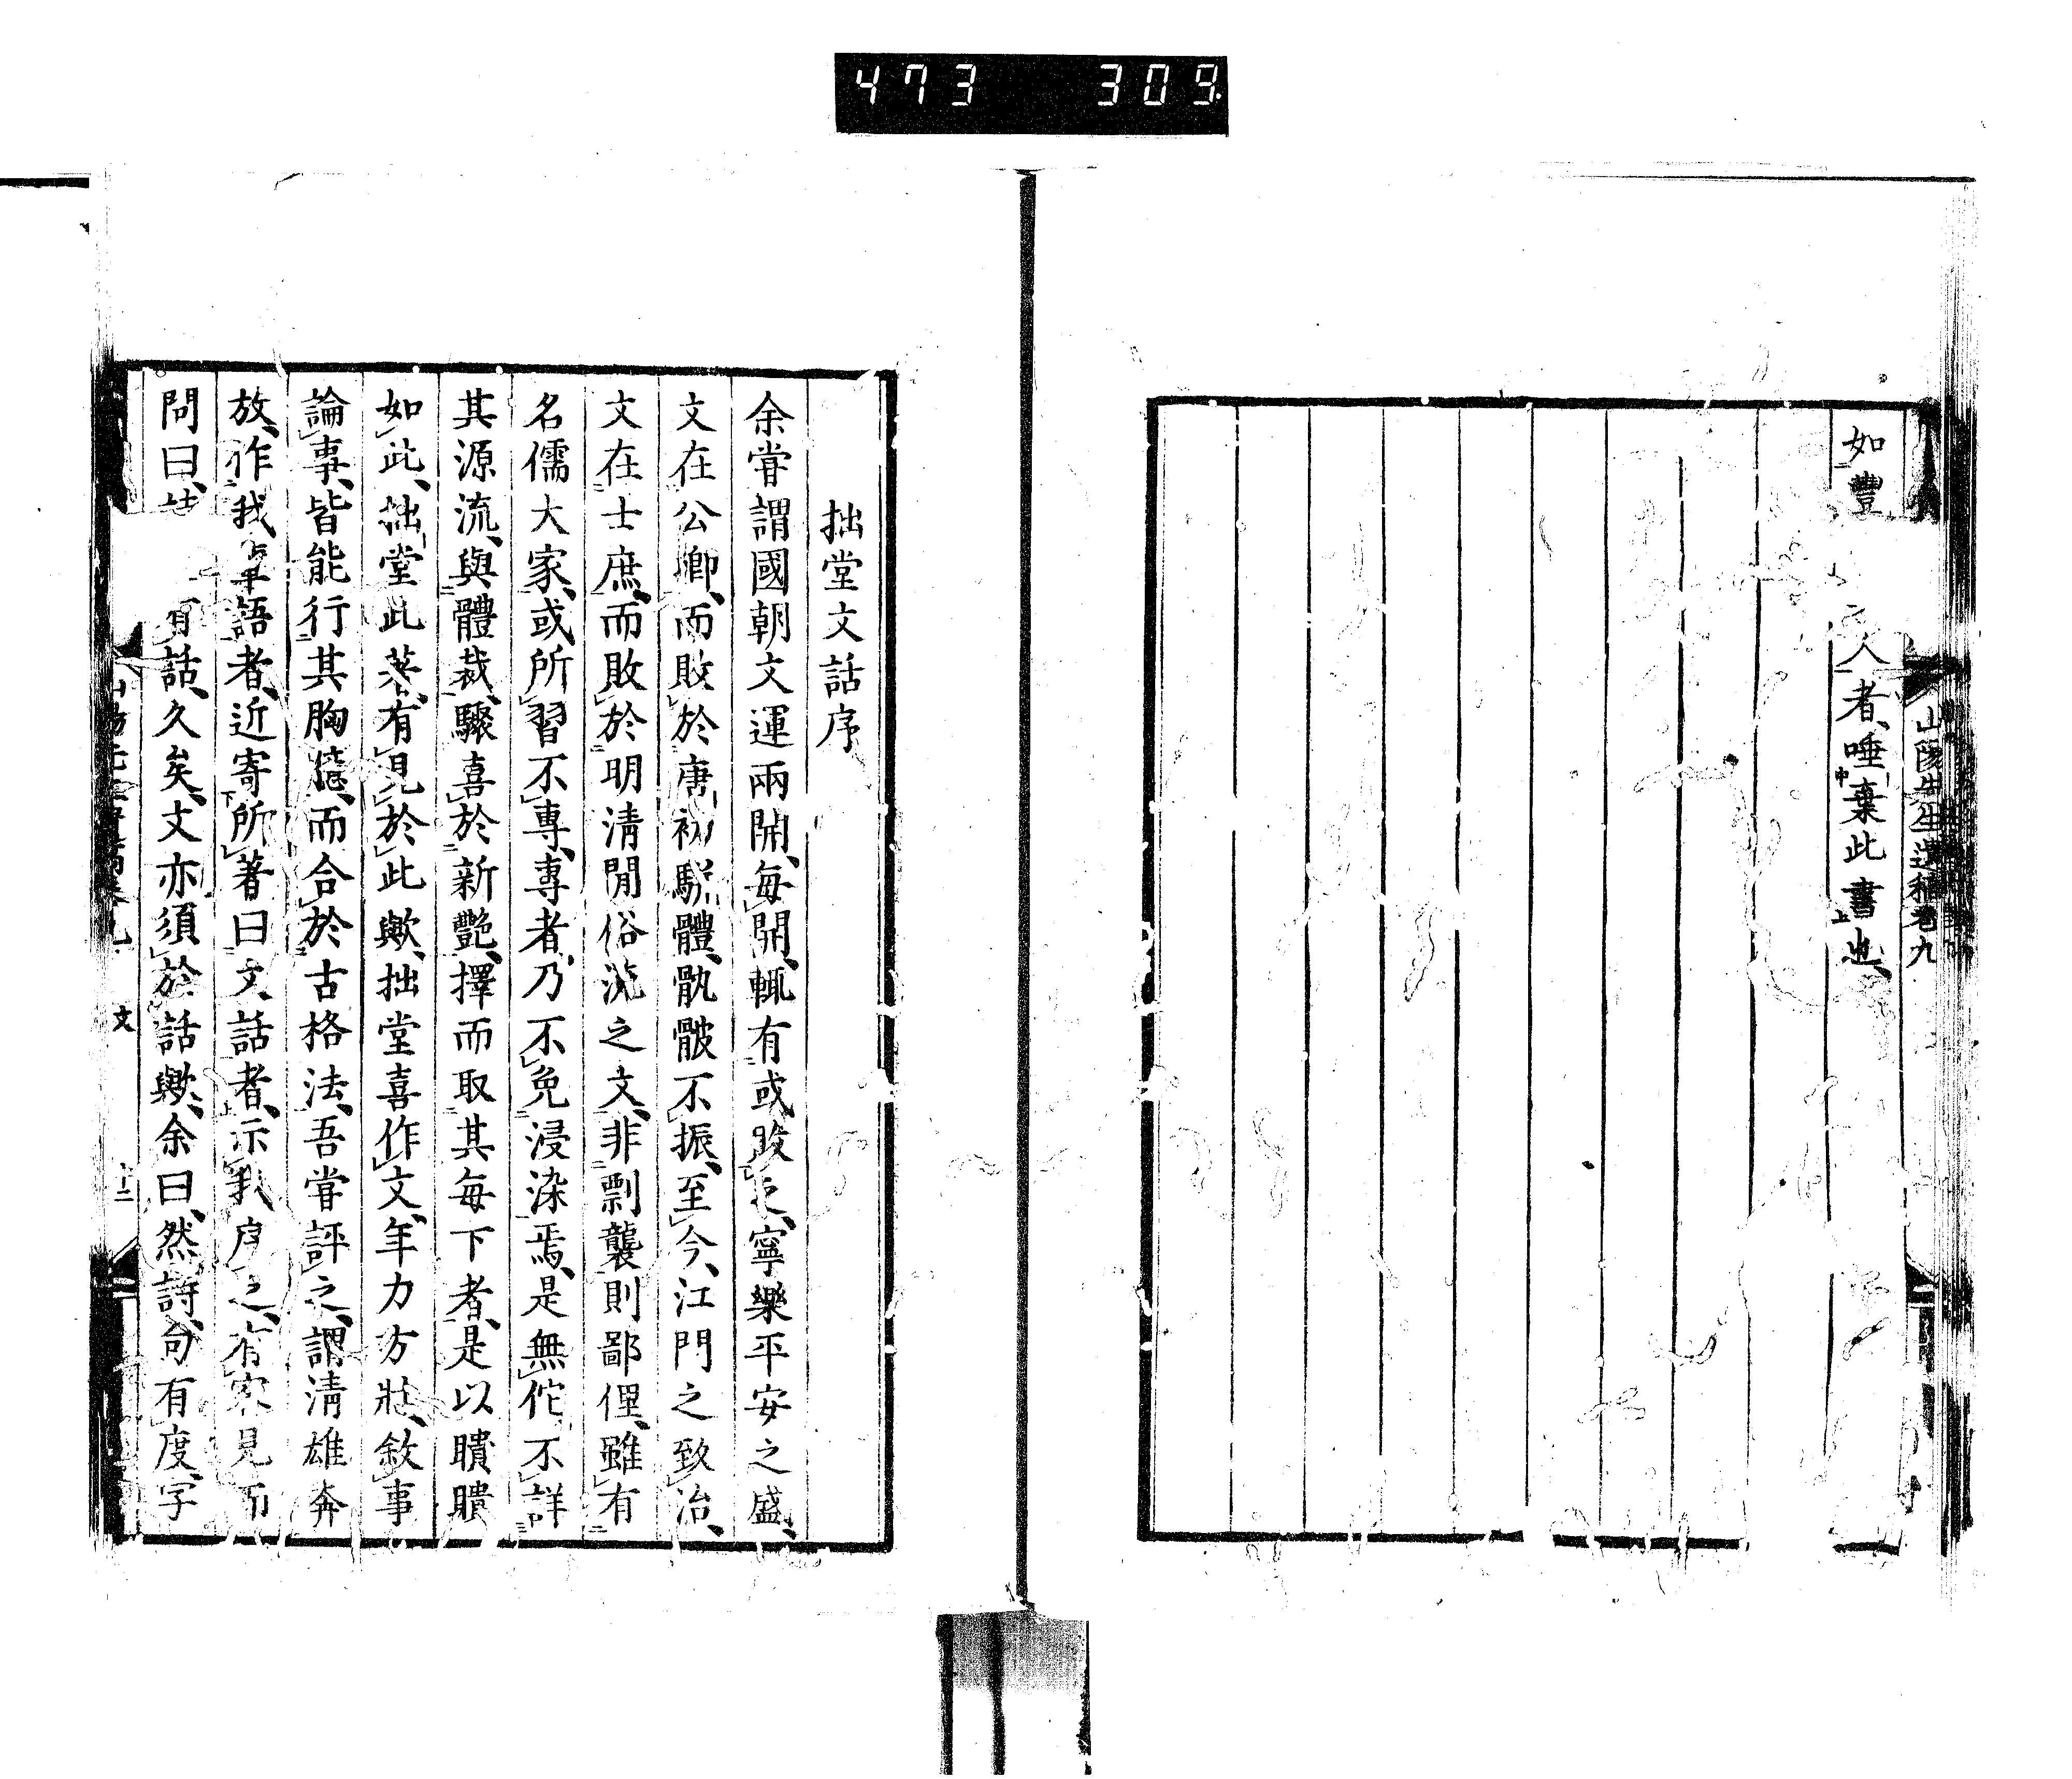 473 309
如豐 人者、唾棄此書也、
山陽先生遺稿卷九
拙堂文話序
余甞謂國朝文運兩開、每開、輒有或敗之、寧樂平安之盛、
文在公卿、而敗於唐初駢體、骫骳不振、至今、江門之致治、
文在士庶、而敗於明清閒俗流之文、非剽襲則鄙俚、雖有
名儒大家、或所習不專、專者、乃不免浸染焉、是無佗、不詳
其源流、與體裁、驟喜於新艷、擇而取其每下者、是以聵聵
如此、拙堂此著、有見於此歟、拙堂喜作文、年力方壯、敘事
論事、皆能行其胸臆、而合於古格法、吾甞評之、謂清雄奔
放、作我輩語者、近寄所著曰文話者、示我序之、有客見而
問曰、詩 有話、久矣、文亦須於話歟、余曰、然、詩、句有度、字
文 十二